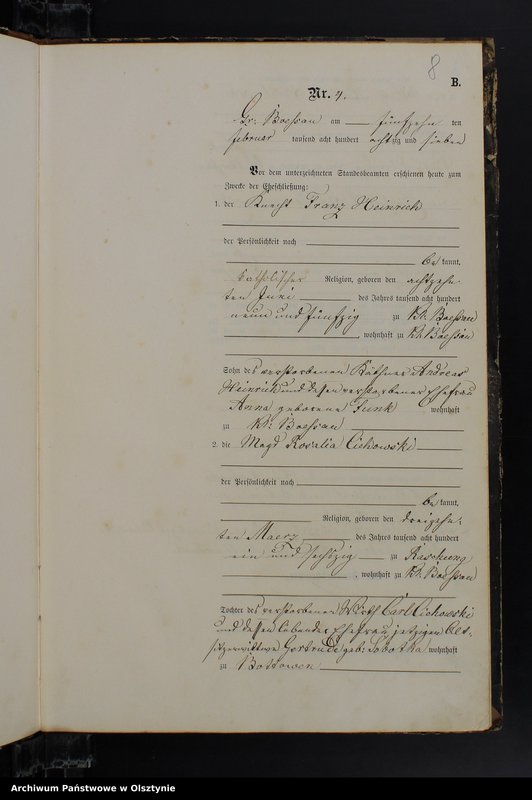 8
B.
Nr. 4.
Gr. Boessau am — fünfzehn ten
Februar tausend acht hundert achtzig und sieben
Vor dem unterzeichneten Standesbeamten erschienen heute zum
Zwecke der Eheschließung:
1. der Knecht Franz Heinrich
der Persönlichkeit nach
be kannt,
katholischer Religion, geboren den achtzehn
ten Juni des Jahres tausend acht hundert
neun und fünfzig zu Kl. Boessau
, wohnhaft zu Kl. Boessau
Sohn des verstorbenen Käthner Andreas
Heinrich und dessen verstorbener Ehefrau
Anna geborene Funk wohnhaft
zu Kl. Boessau
2. die Magd Rosalia Cichowski
der Persönlichkeit nach
be kannt,
Religion, geboren den dreizehn
ten Maerz des Jahres tausend acht hundert
ein und sechszig zu Raschung
, wohnhaft zu Kl. Boessau
Tochter des verstorbenen Wirth Carl Cichowski
und dessen lebender Ehefrau jetzigen Be-
sitzerwittwe Gertrude geb: Sobotha wohnhaft
zu Bottowen
Archiwum Państwowe w Olsztynie